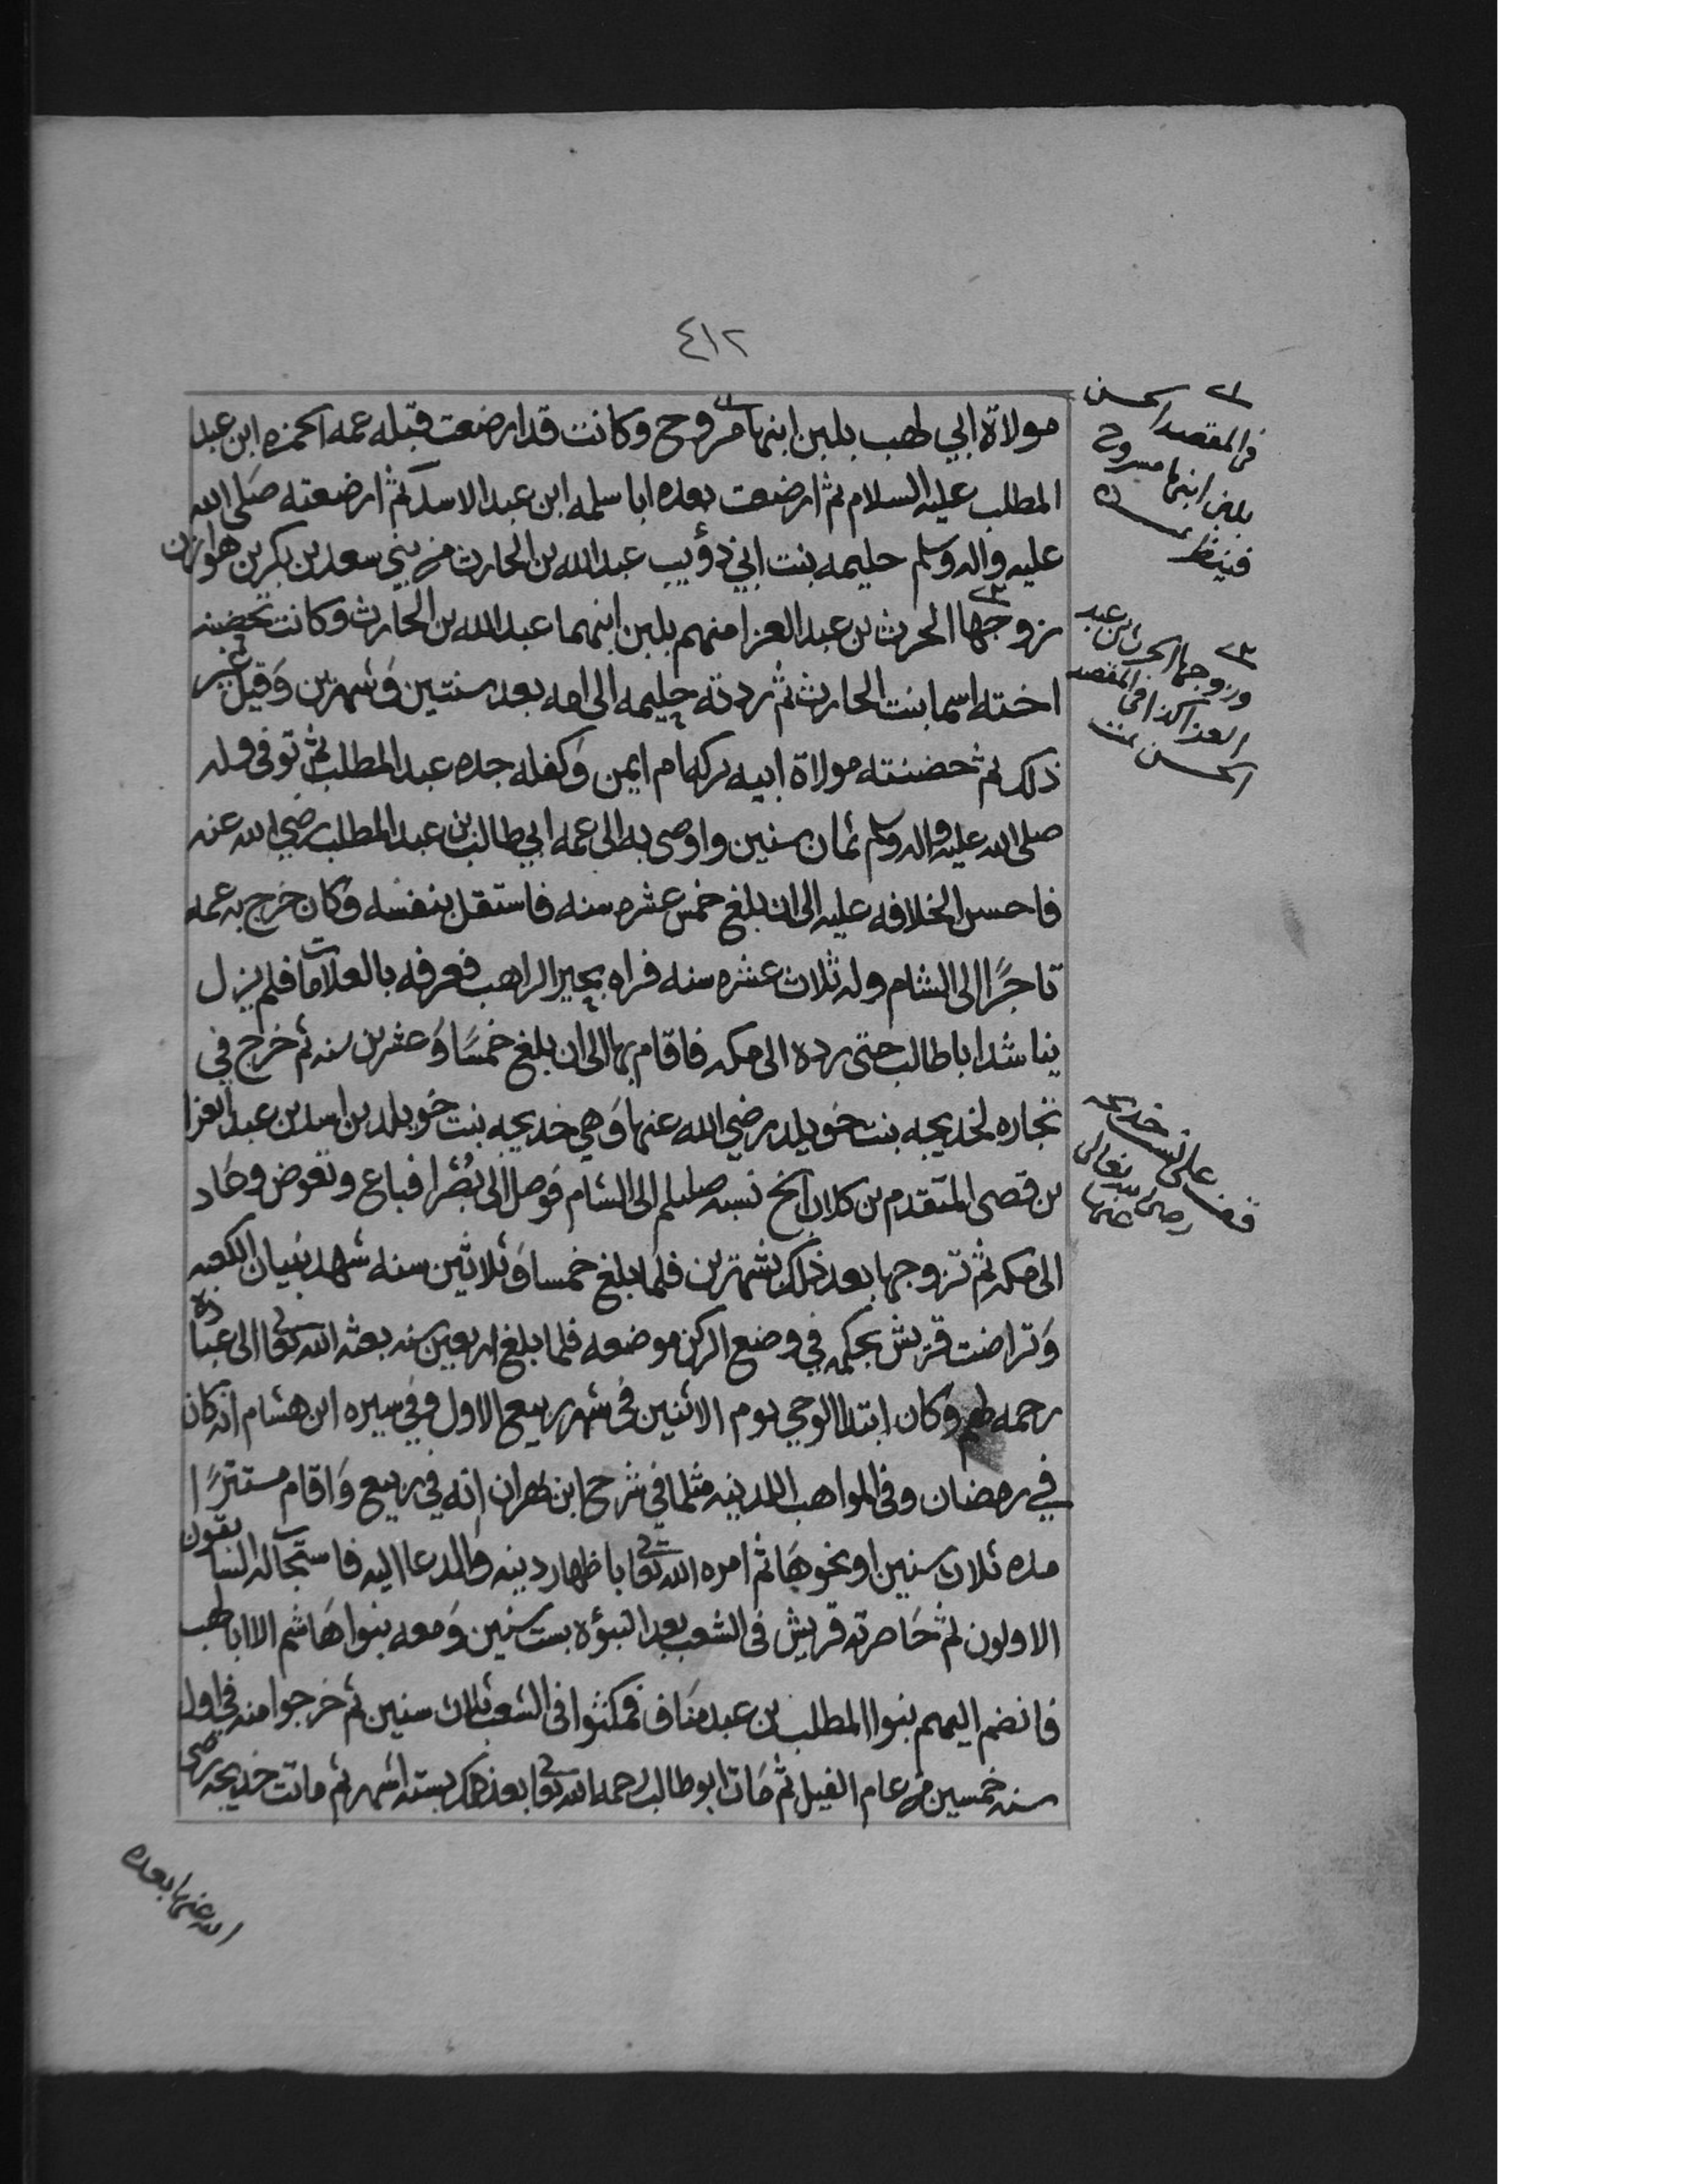 ٤١٢
مولاة ابي لهب بلبن ابنها مروح وكانت قد ارضعت قبله عمه الحمزه ابن عبد
المطلب عليه السلام ثم ارضعت بعده ابا سلمه ابن عبد الاسد ثم ارضعته صلى الله
عليه واله وسلم حليمه بنت ابي ذؤيب عبد الله بن الحارث من بني سعد بن بكر بن هوازن
زوجها الحرث بن عبد العزا منهم بلبن ابنهما عبد الله بن الحارث وكانت تحضنه
اخته اسما بنت الحارث ثم ردته حليمه الى امه بعد سنتين وشهرين وقيل غير
ذلك ثم حضنته مولاة ابيه بركه ام ايمن وكفله جده عبد المطلب ثم توفي وله
صلى الله عليه واله وسلم ثمان سنين واوصى به الى عمه ابي طالب بن عبد المطلب رضي الله عنه
فاحسن الخلافه عليه الى ان بلغ خمس عشره سنه فاستقل بنفسه وكان خرج به عمه
تاجرًا الى الشام وله ثلاث عشره سنه فراه بحيرا الراهب فعرفه بالعلامات فلم يزل
يناشد ابا طالب حتى رده الى مكه فاقام بها الى ان بلغ خمسًا وعشرين سنه ثم خرج في
تجاره لخديجه بنت خويلد رضي الله عنها وهي خديجه بنت خويلد بن اسد بن عبد العزا
بن قصي المتقدم بن كلاب الخ نسبه صللم الى الشام فوصل الى بُصرا فباع وتعوض وعاد
الى مكه ثم تزوجها بعد ذلك بشهرين فلما بلغ خمسا وثلاثين سنه شهد بنيان الكعبه
وتراضت قريش بحكمه في وضع الركن موضعه فلما بلغ اربعين سنه بعثه الله تعا الى عباده
رحمه لهم وكان ابتدا الوحي يوم الاثنين في شهر ربيع الاول وفي سيره ابن هشام انه كان
في رمضان وفي المواهب اللدنيه مثلما في شرح ابن بهران انه في ربيع واقام مستترًا
مده ثلاث سنين او نحوها ثم امره الله تعا باظهار دينه والدعا اليه فاستجاب له السابقون
الاولون ثم حاصرته قريش في الشعب بعد النبؤة بست سنين ومعه بنوا هاشم الا ابا لهب
فانضم اليهم بنوا المطلب بن عبد مناف فمكثوا في الشعب ثلاث سنين ثم خرجوا منه في اول
سنه خمسين من عام الفيل ثم مات ابو طالب رحمه الله تعا بعد ذلك بسته اشهر ثم ماتت خديجه رضي
الله عنها بعده
في المقصد الحسن
بلبن ابنها مسروح
فينظر
وزوجها الحرث بن عبد
العزا كذا في المقصد
الحسن تمت
على نسب خديجه
رضي الله تعالى
عنها